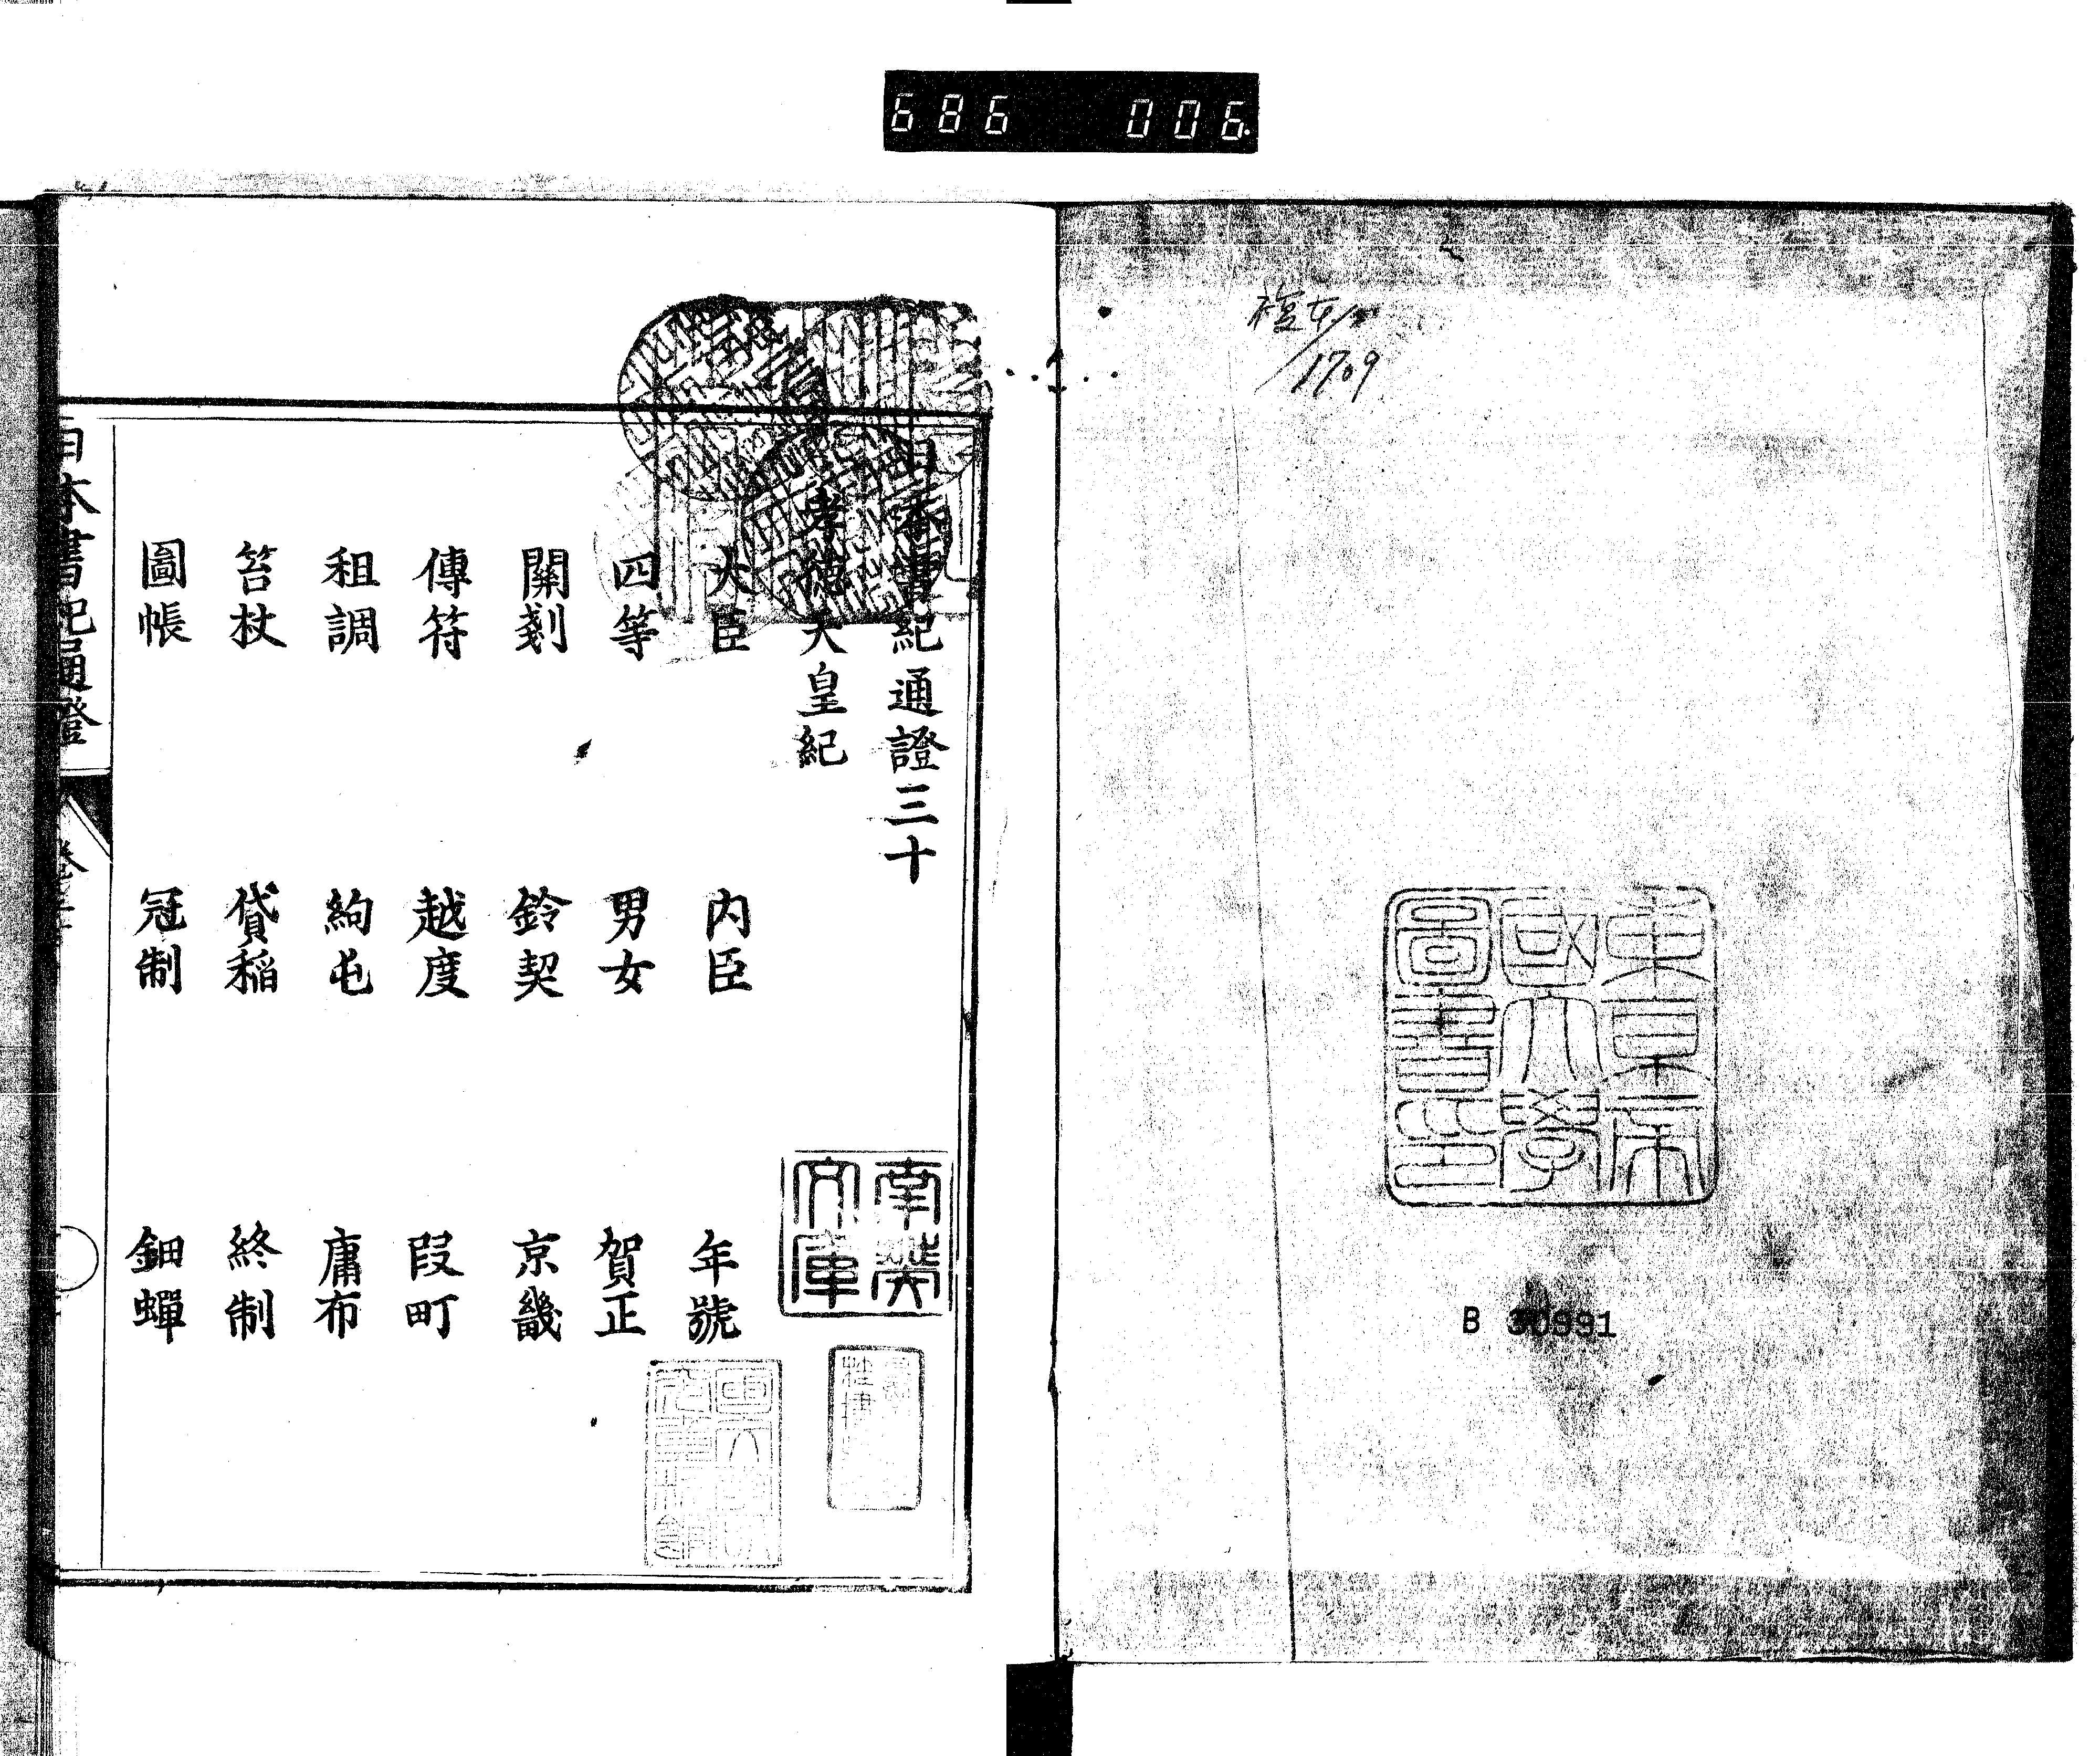 686 006
複本
1709
東京帝
國大學
圖書印
B 30991
日本書紀通證三十
孝德天皇紀
大臣 内臣 年號
四等 男女 賀正
關剗 鈴契 京畿
傳符 越度 段町
租調 絇屯 庸布
笞杖 貸稲 終制
圖帳 冠制 鈿蟬
南葵
文庫
日本書紀通證